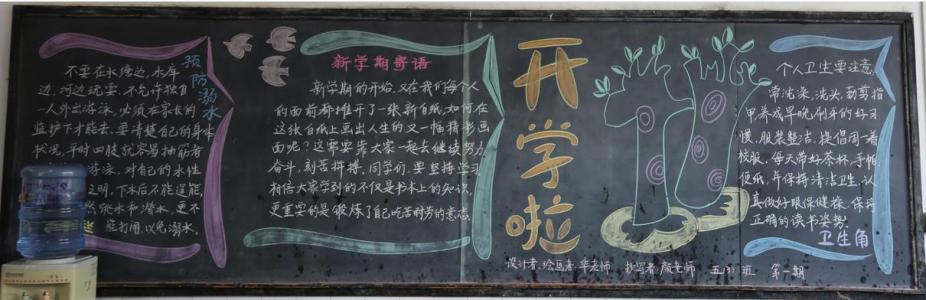 预防溺水
不要在水塘边、水库
边、河边玩耍。不允许独自
一人外出游泳，必须在家长的
监护下才能去。要清楚自己的身体
状况，平时四肢就容易抽筋者
游泳。对自己的水性
之明，下水后不能逞能，
跳水和潜水，更不
能打闹，以免溺水。
新学期寄语
新学期的开始，又在我们每个人
的面前都摊开了一张新白纸，如何在
这张白纸上画出人生的又一幅精彩画
面呢？这需要靠大家一起去继续努力
奋斗，刻苦拼搏，同学们，要坚持学习
相信大家学到的不仅是书本上的知识，
更重要的是锻炼了自己吃苦耐劳的意志
开学啦
个人卫生要注意
常洗澡、洗头，勤剪指
甲养成早晚刷牙的好习
惯。服装整洁，提倡周一着
校服。每天带好茶杯、手帕、
便纸，并保持清洁卫生。认
真做好眼保健操，保持
正确的读书姿势。
卫生角
设计者、绘画者：华老师 抄写者：颜老师 五(3)班 第一期